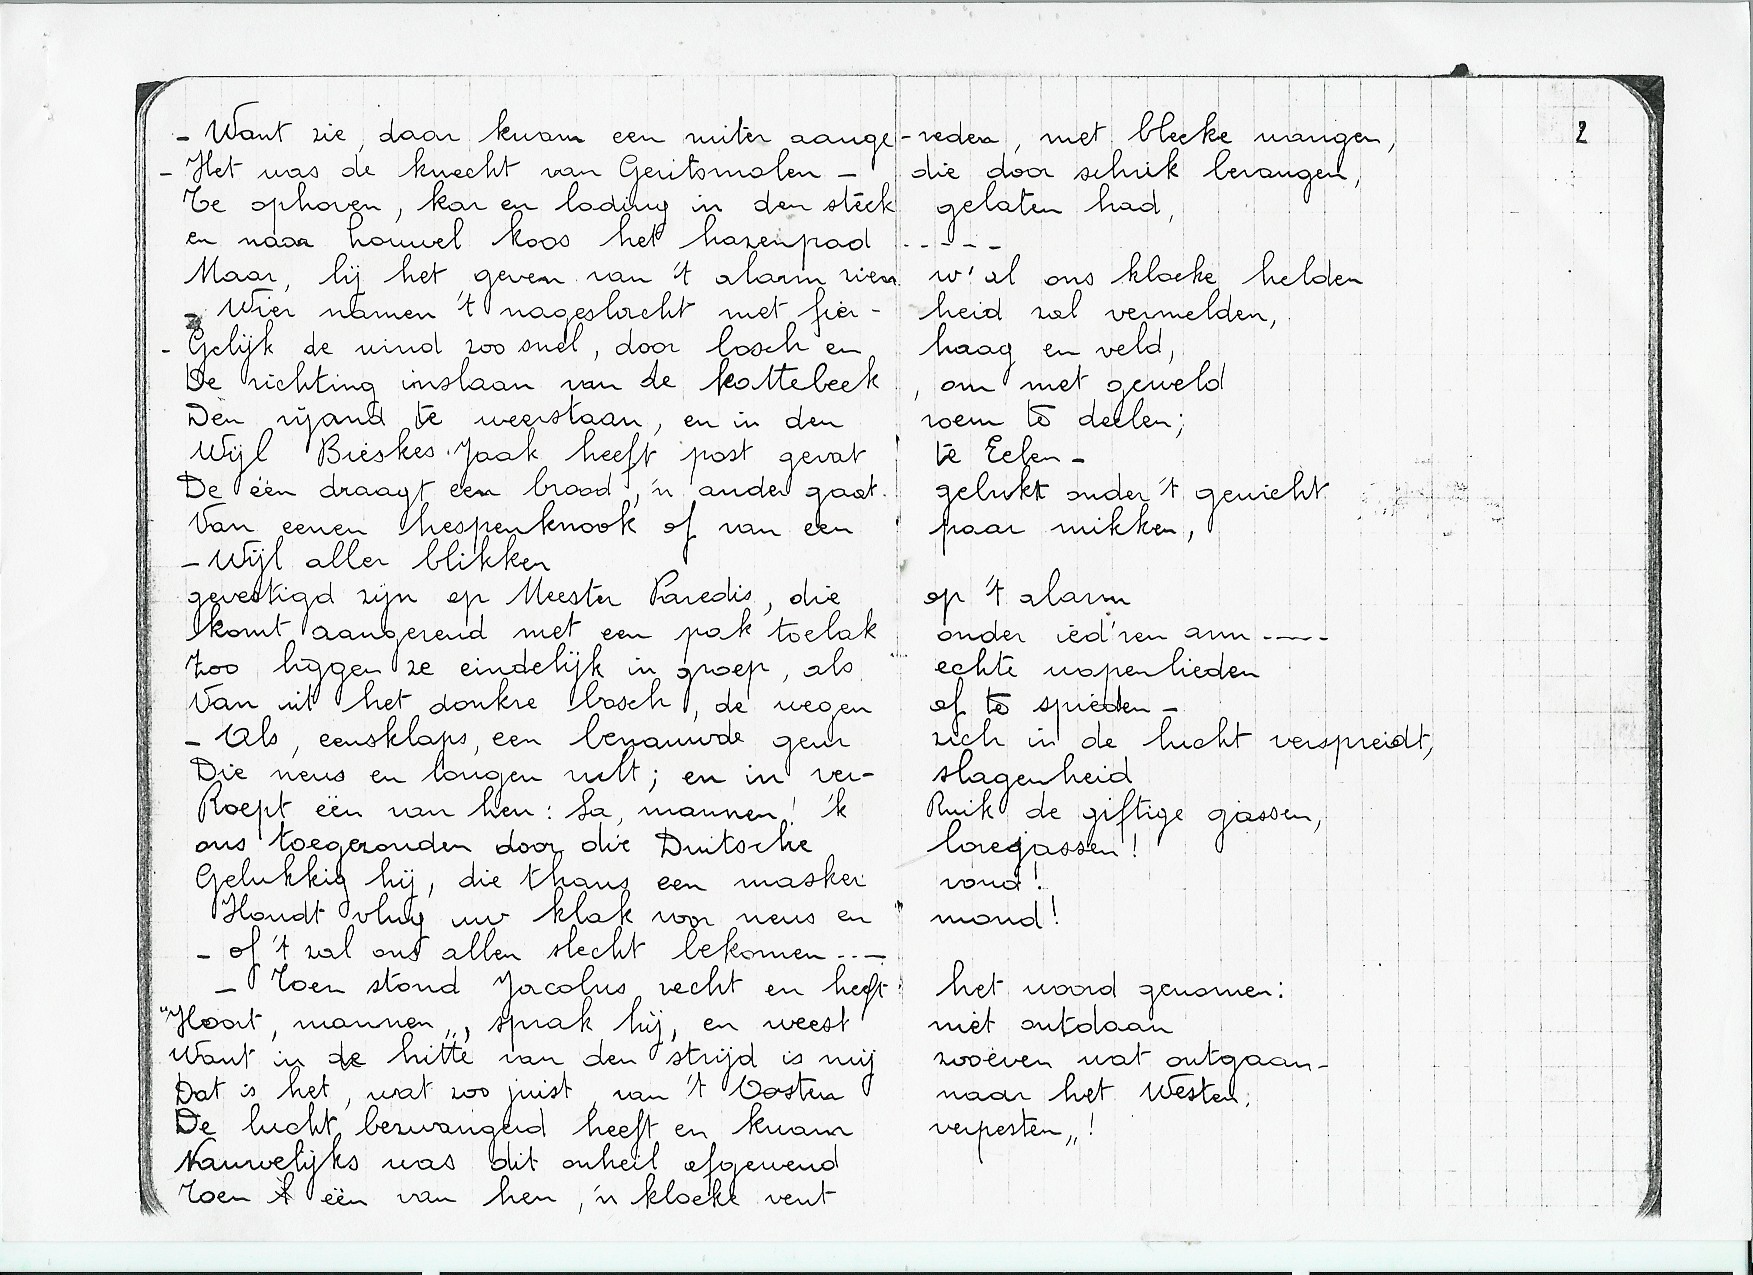 2
- Want zie, daar kwam een ruiter aange-reden, met bleeke wangen,
- Het was de knecht van Geritsmolen - die door schrik bevangen,
Te ophoven, kar en lading in den steek gelaten had,
en naar houwel koos het hazenpad .----
Maar, bij het geven van 't alarm zien w' al ons kloeke helden
- Wier namen 't nageslacht met fier-heid zal vermelden,
- Gelijk de wind zoo snel, door bosch en haag en veld,
De richting inslaan van de kattebeek, om met geweld
Den vijand te weerstaan, en in den roem te deelen;
Wijl Bieskes Jaak heeft post gevat te Eelen -
De één draagt een brood, 'n ander gaat gebukt onder 't gewicht
Van eenen hespenknook of van een paar mikken,
- Wijl aller blikken
gevestigd zijn op Meester Paredis, die op 't alarm
komt aangerend met een pak toebak onder ied'ren arm ----
Zoo liggen ze eindelijk in groep, als echte wapenlieden
Van uit het donkre bosch, de wegen af te spieden -
- Als, eensklaps, een benauwde geur zich in de lucht verspreidt,
Die neus en longen vult; en in ver-slagenheid
Roept één van hen: Sa, mannen! 'k Ruik de giftige gassen,
ons toegezonden door die Duitsche loregassen!
Gelukkig hij, die thans een masker vond!
Houdt vlug uw klak voor neus en mond!
- of 't zal ons allen slecht bekomen ...-
- Toen stond Jacobus recht en heeft het woord genomen:
"Hoort, mannen„, sprak hij, en weest niet ontdaan
Want in de hitte van den strijd is mij zooëven wat ontgaan-
Dat is het, wat zoo juist, van 't Oosten naar het Westen,
De lucht bezwangerd heeft en kwam verpesten„!
Nauwelijks was dit onheil afgewend
Toen één van hen, 'n kloeke vent